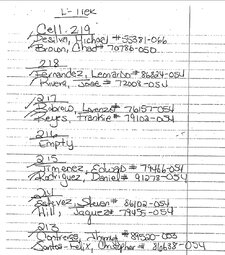 L-Tier
Cell. 219
Desilva, Michael # 55381-066
Brown, Chad# 70786-050
218
Fernandez, Leonardo# 86824-054
Rivera, Jose # 72008-054
217
Lorenzo# 76157-054
Keyes, Frankie# 79103-054
216
Empty
215
Jimenez, # 79466-054
Rodriguez, Daniel# 91278-054
214
Estevez, Steven# 86102-054
Hill, Jaquez# 79455-054
213
Contreras, # 84520-053
Santos-Felix, Christopher# 86638-054